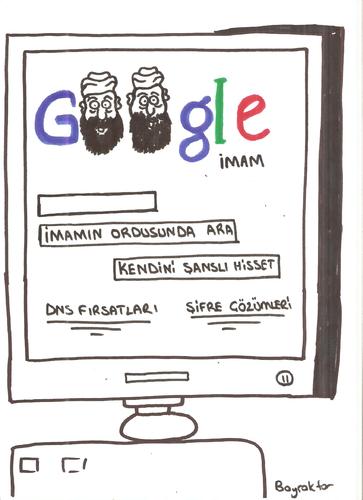 Google
İMAM
İMAMIN ORDUSUNDA ARA
KENDİNİ ŞANSLI HİSSET
DNS FIRSATLARI
ŞİFRE ÇÖZÜMLERİ
Bayraktar